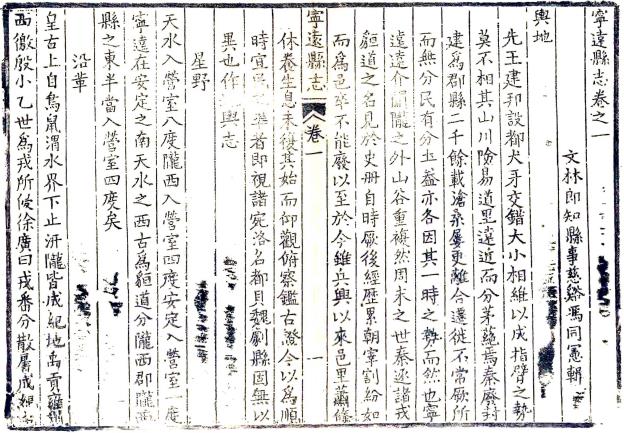 寧遠縣志卷之一
文林郎知縣事慈谿馮同憲輯
輿地
先王建邦設都犬牙交錯大小相維以成指臂之勢
莫不相其山川險易道里遠近而分茅蕝焉秦廢封
建為郡縣二千餘載滄桑屢更離合遷徙不常厥所
而無分民有分土蓋亦各因其一時之勢而然也寧
遠遠介關隴之外山谷重複然周末之世秦逐諸戎
豲道之名見於史册自時厥後經歷累朝宰割紛如
而為邑卒不能廢以至於今雖兵興以來邑里蕭條
寧遠縣志
卷一
一
休養生息未復其始而仰觀俯察鑑古證今以為順
時宜民之準者即視諸宛洛名都貝魏劇縣固無以
異也作輿志
星野
天水入營室八度隴西入營室四度安定入營室一度
寧遠在安定之南天水之西古為豲道分隴西郡隴西
縣之東半當入營室四度矣
沿革
皇古上自鳥鼠渭水界下止汧隴皆成紀地禹貢雍州
西徼殷小乙世為戎所侵徐廣曰戎番分散居成紀